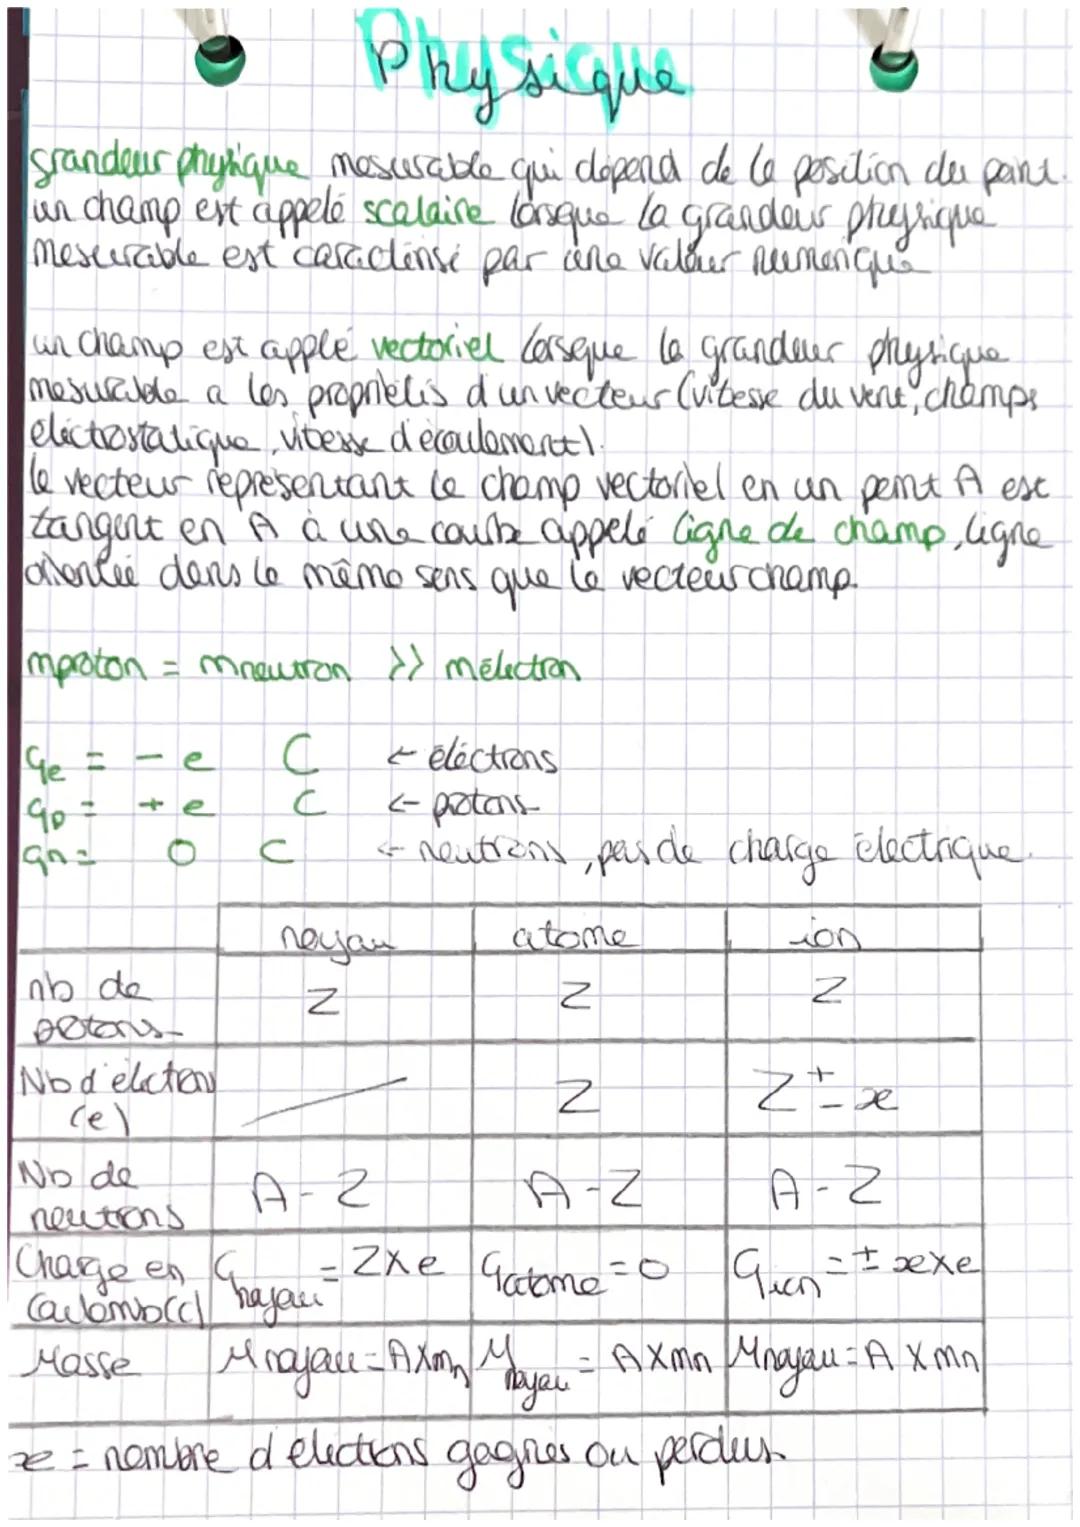 Physique
grandeur physique mesurable qui dépend de la position du point.
un champ est appelé scalaire lorsque la grandeur physique
mesurable est caractérisé par une valeur numérique
un champ est applé vectoriel lorsque la grandeur physique
mesurable a les propriétés d'un vecteur (vitesse du vent, champs
électrostatique, vitesse d'écoulement).
le vecteur représentant le champ vectoriel en un point A est
tangent en A à une courbe appelé ligne de champ, ligne
orientée dans le même sens que le vecteur champ.
mproton = mneutron >> mélectron
qe = - e C ← éléctrons
qp = + e C ← protons
qn = 0 C ← neutrons, pas de charge électrique.
noyau atome ion
nb de protons Z Z Z
Nb d'électrons (e) / Z Z ± x
Nb de neutrons A - Z A - Z A - Z
Charge en Coulomb (c) q noyau = Z x e q atome = 0 q ion = ± x x e
Masse M noyau = A x mn M noyau = A x mn M noyau = A x mn
x = nombre d'élections gagnés ou perdus.